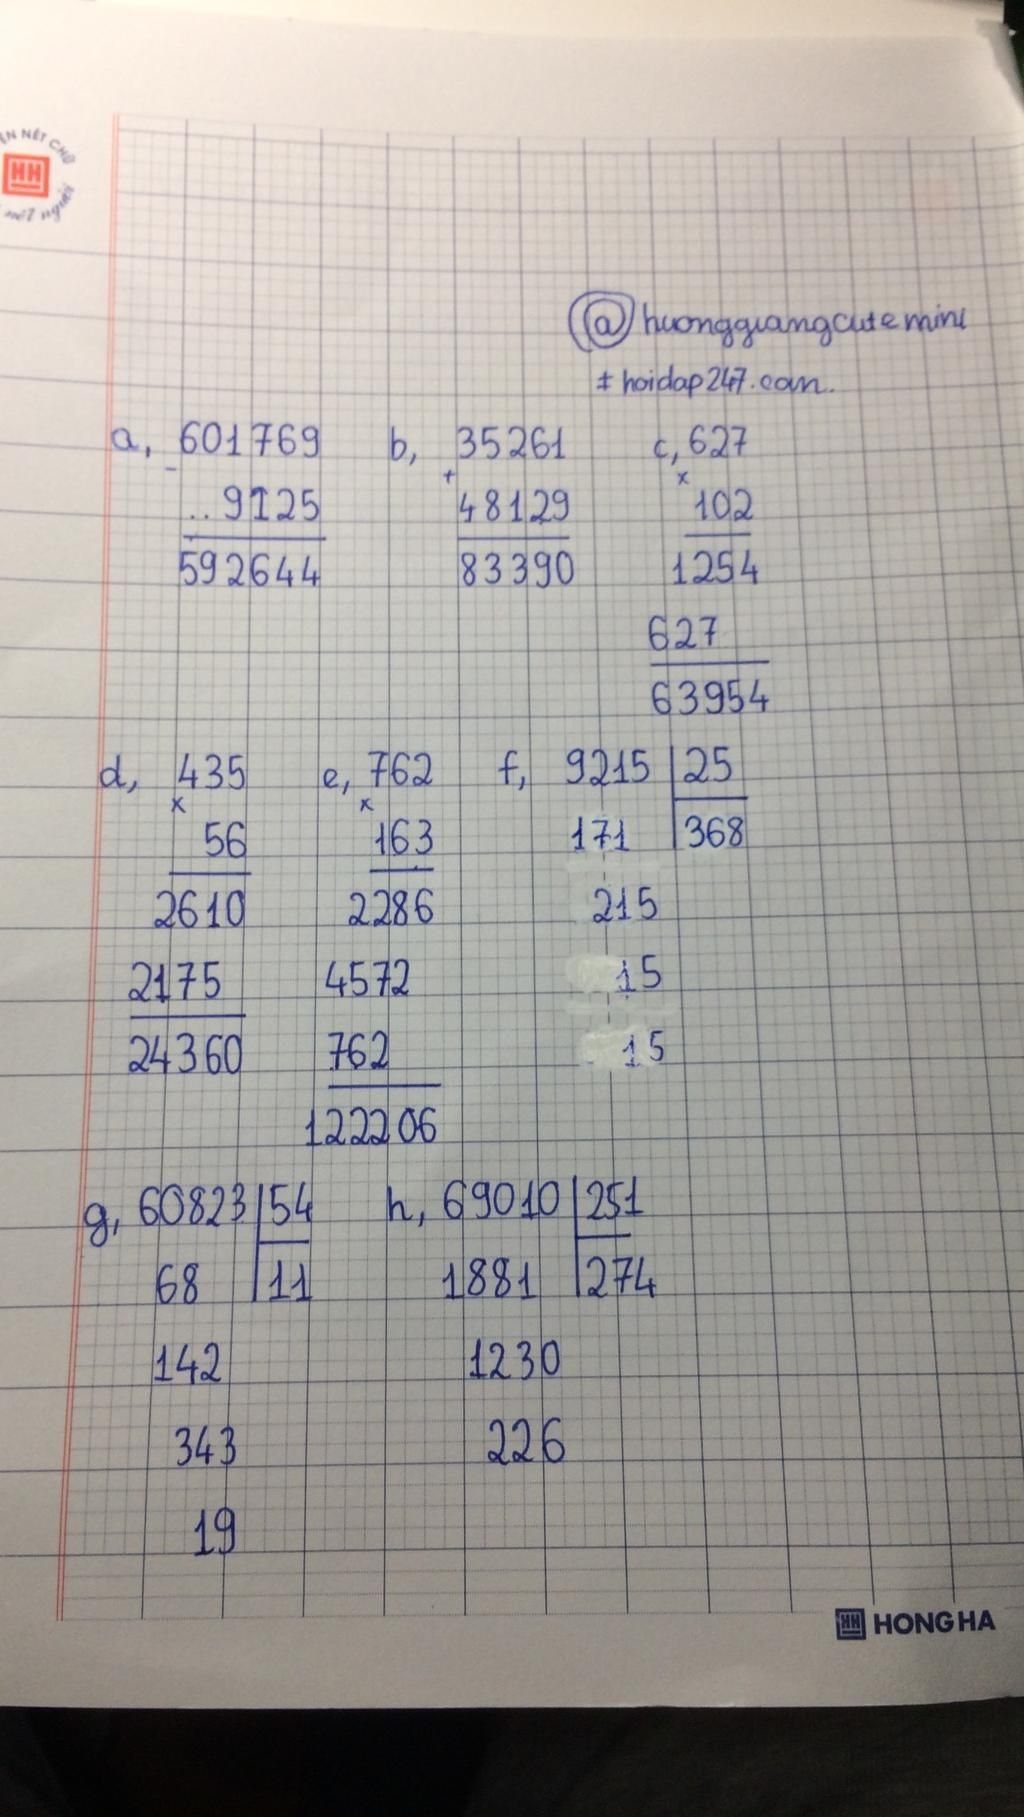 ÈN NÉT CHỮ
HH
nết người
@huonggiangcutemini
# hoidap247.com.
a, 601769 b, 35261 c, 627
- + x
..9125 48129 102
592644 83390 1254
627
63954
d, 435 e, 762 f, 9215 25
x x
56 163 171 368
2610 2286 215
2175 4572 15
24360 762 15
122206
g, 60823 54 h, 69010 251
68 11 1881 274
142 1230
343 226
19
HH HONG HA